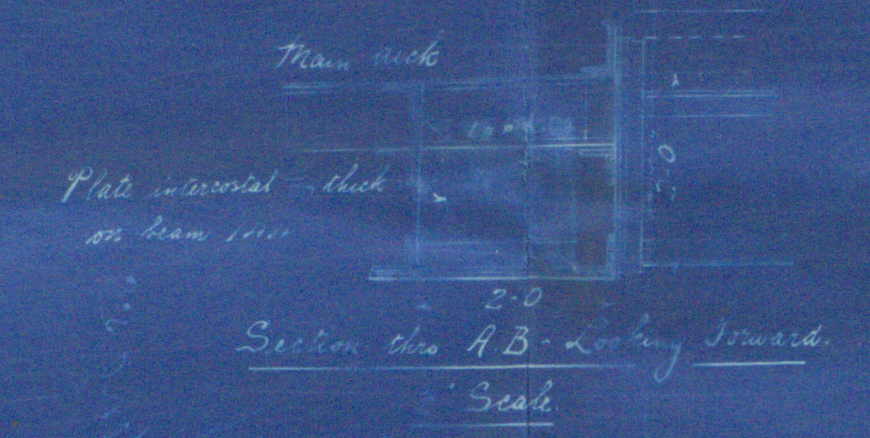 Main deck
Plate intercostal thick
on beam
2-0
Section thro A.B - Looking Forward.
Scale.